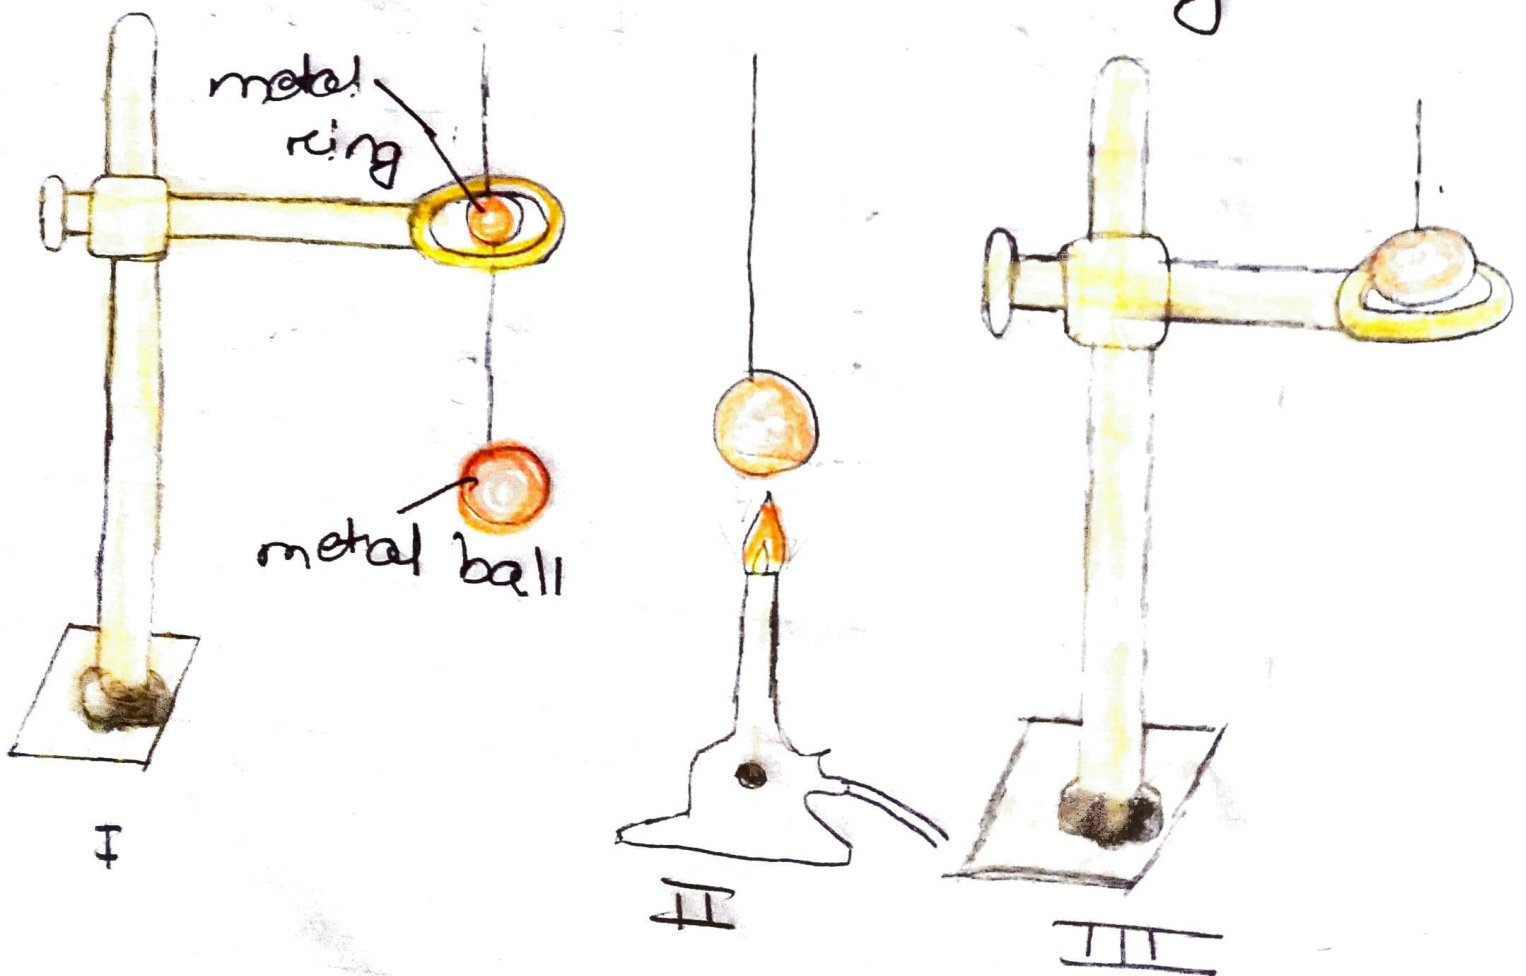 metal
ring
metal ball
I
II
III